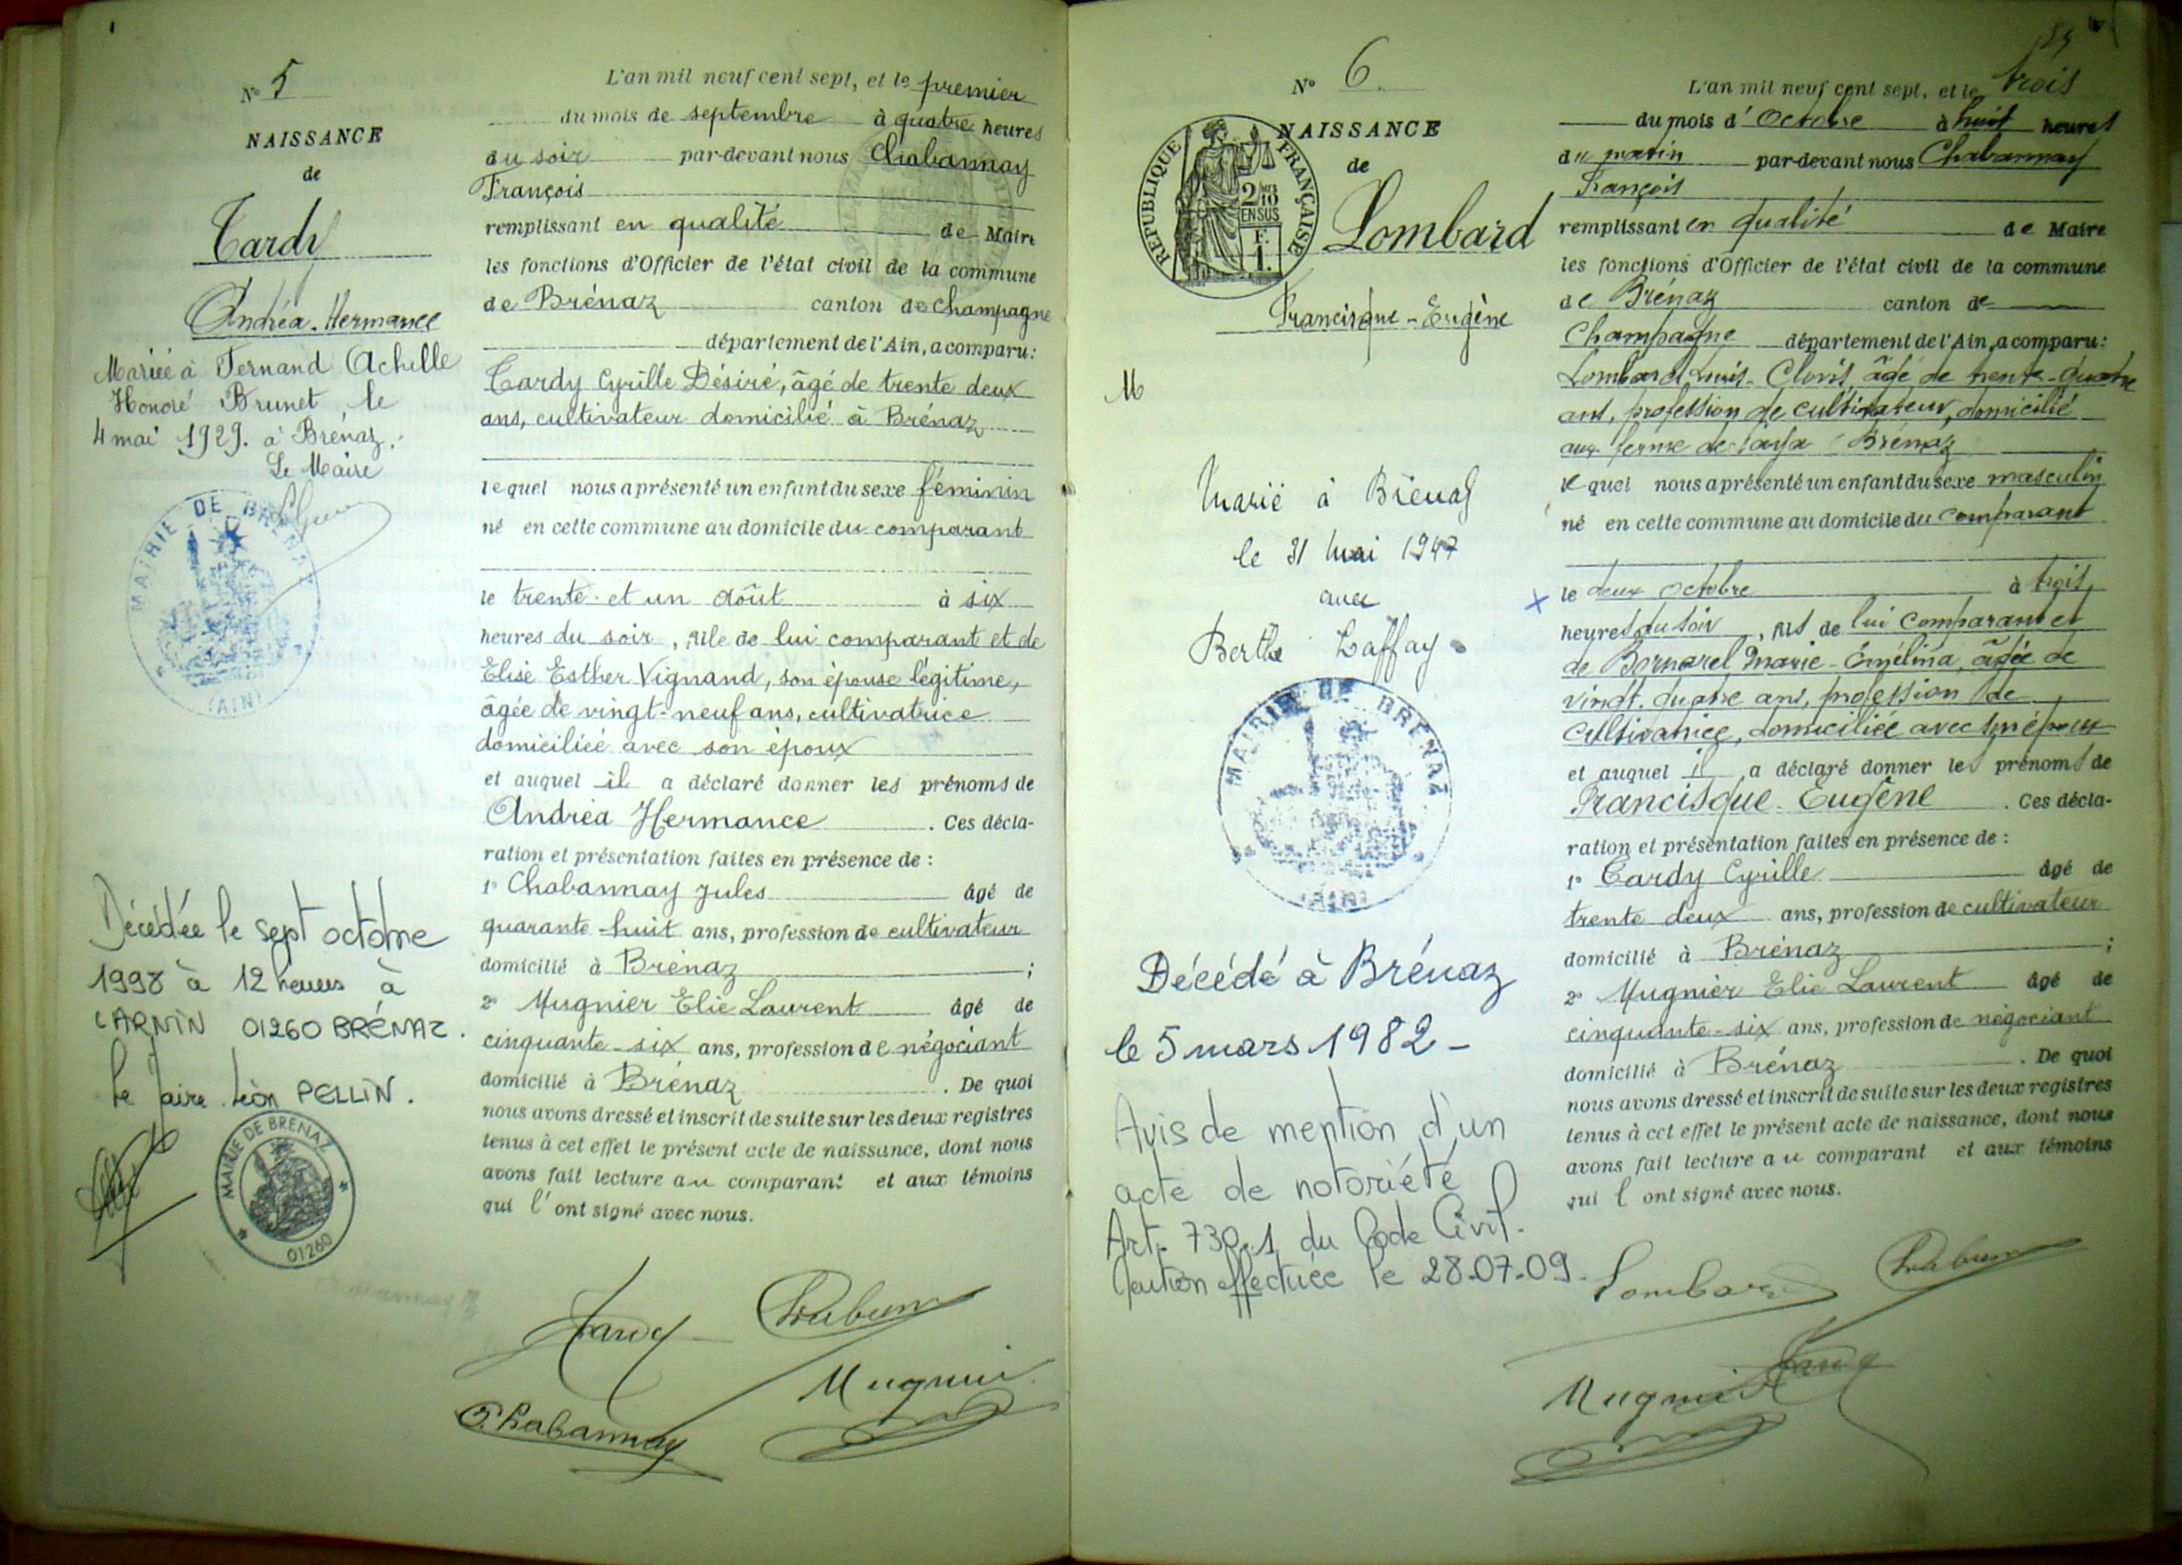 N° 5
NAISSANCE
de
Tardy
Andréa-Hermance
Mariée à Fernand Achille
Honoré Brunet, le
4 mai 1929. à Brénaz.
Le Maire
MAIRIE DE BRENAZ
(AIN)
Décédée le sept octobre
1998 à 12 heures à
LARNIN 01260 BRÉNAZ.
le Maire Léon PELLIN.
MAIRIE DE BRENAZ
01260
L'an mil neuf cent sept, et le premier
du mois de septembre à quatre heures
du soir par-devant nous Chabannay
François
remplissant en qualité de Maire
les fonctions d'Officier de l'état civil de la commune
de Brénaz canton de Champagne
département de l'Ain, a comparu:
Tardy Cyrille Désiré, âgé de trente deux
ans, cultivateur domicilié à Brénaz
lequel nous a présenté un enfant du sexe féminin
né en cette commune au domicile du comparant
le trente et un août à six
heures du soir, fille de lui comparant et de
Elise Esther Vignand, son épouse légitime,
âgée de vingt-neuf ans, cultivatrice
domiciliée avec son époux
et auquel il a déclaré donner les prénoms de
Andréa Hermance. Ces décla-
ration et présentation faites en présence de :
1° Chabannay Jules âgé de
quarante-huit ans, profession de cultivateur
domicilié à Brénaz ;
2° Mugnier Elie Laurent âgé de
cinquante-six ans, profession de négociant
domicilié à Brénaz. De quoi
nous avons dressé et inscrit de suite sur les deux registres
tenus à cet effet le présent acte de naissance, dont nous
avons fait lecture au comparant et aux témoins
qui l'ont signé avec nous.
Tardy
Mugnier
Chabannay
N° 6.
NAISSANCE
de
REPUBLIQUE FRANÇAISE
2/10
EN SUS
F.
1.
Lombard
Francisque-Eugène
M
Marié à Brénaz
le 31 mai 1947
avec
Berthe Laffay
MAIRIE DE BRENAZ
(AIN)
Décédé à Brénaz
le 5 mars 1982 -
Avis de mention d'un
acte de notoriété
Art. 730.1 du Code Civil.
effectuée le 28.07.09.
L'an mil neuf cent sept, et le trois
du mois d'Octobre à huit heures
du matin par-devant nous Chabannay
François
remplissant en qualité de Maire
les fonctions d'Officier de l'état civil de la commune
de Brénaz canton de
Champagne département de l'Ain, a comparu:
Lombard Louis-Clovis, âgé de trente-quatre
ans, profession de cultivateur, domicilié
ferme de Brénaz
lequel nous a présenté un enfant du sexe masculin
né en cette commune au domicile du comparant
x le deux octobre à trois
heures du soir, fils de lui comparant et
de Bornarel Marie-Émélina, âgée de
vingt-quatre ans, profession de
cultivatrice, domiciliée avec son époux
et auquel il a déclaré donner les prénoms de
Francisque-Eugène. Ces décla-
ration et présentation faites en présence de :
1° Tardy Cyrille âgé de
trente deux ans, profession de cultivateur
domicilié à Brénaz ;
2° Mugnier Elie Laurent âgé de
cinquante-six ans, profession de négociant
domicilié à Brénaz. De quoi
nous avons dressé et inscrit de suite sur les deux registres
tenus à cet effet le présent acte de naissance, dont nous
avons fait lecture au comparant et aux témoins
qui l'ont signé avec nous.
Lombard
Mugnier Tardy